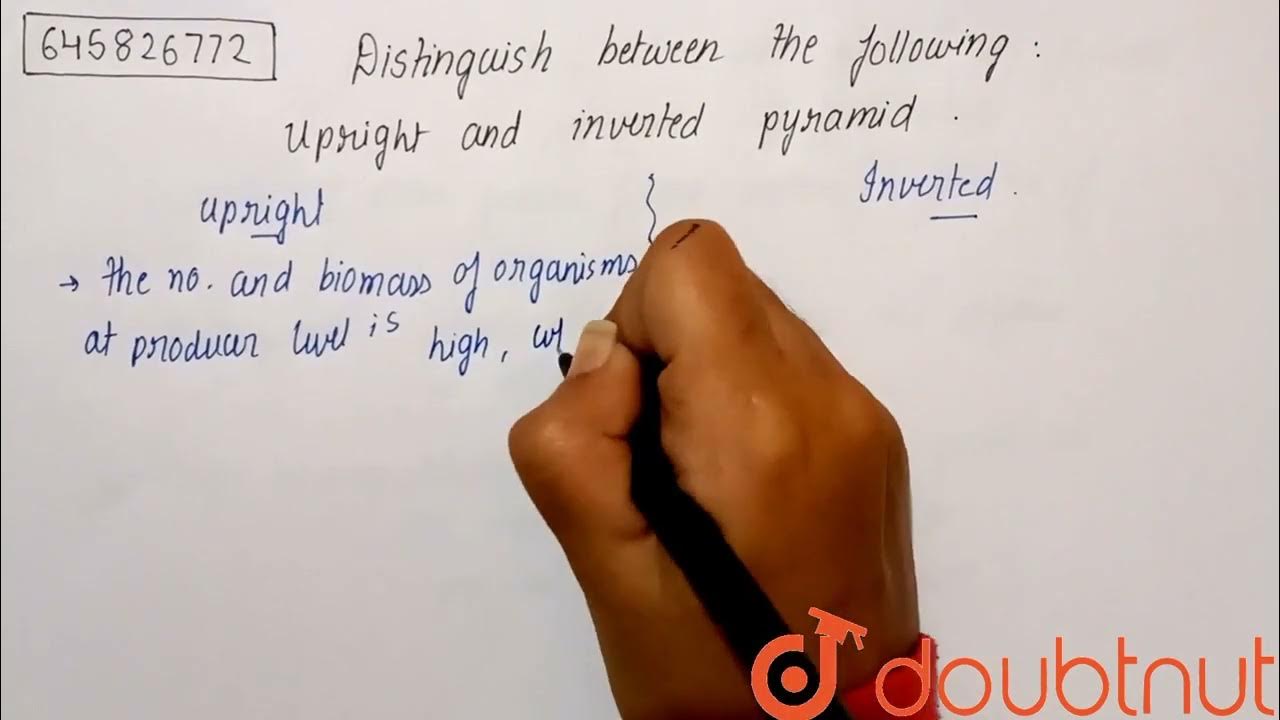 645826772 Distinguish between the following :
Upright and inverted pyramid .
upright Inverted .
→ the no. and biomass of organisms
at producer level is high,
doubtnut